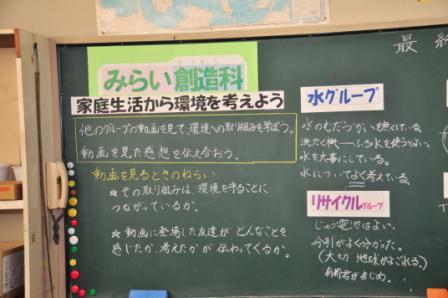 みらい創造科
家庭生活から環境を考えよう
他のグループの動画を見て、環境への取り組みを学ぼう。
動画を見た感想を伝え合おう。
動画を見るときのねらい
★その取り組みは、環境を守ることに
つながっているか。
★動画に登場した友達が どんなことを
感じたか、考えたかが 伝わってくるか。
最終
水グループ
水のむだづかいを無くしている。
洗たく機
水を大事にしている。
水についてよく考えている。
リサイクルグループ
じゅう電池はよい。
分別がよく分かった。
(大切 地球がよごれる。)